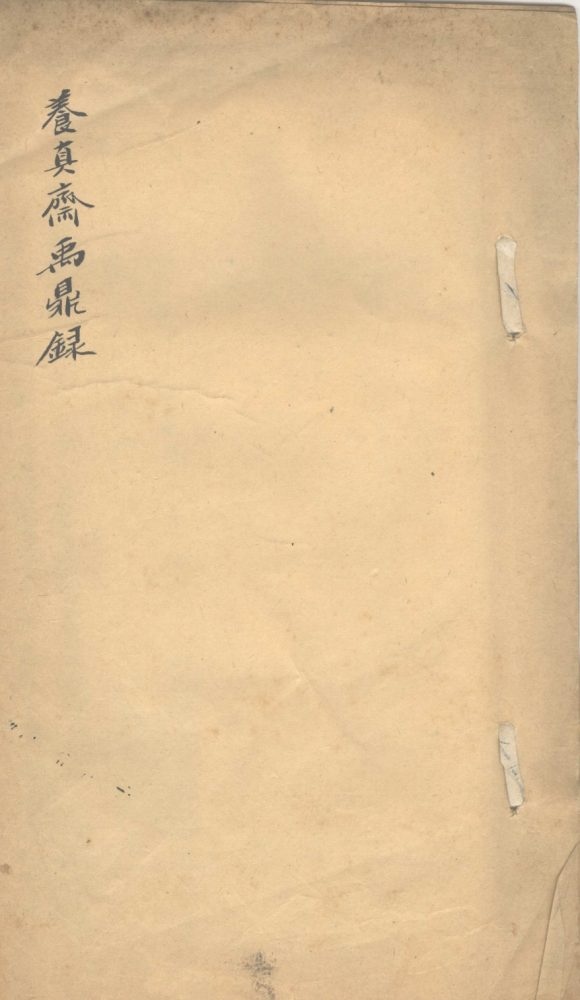 養真齋禹鼎録